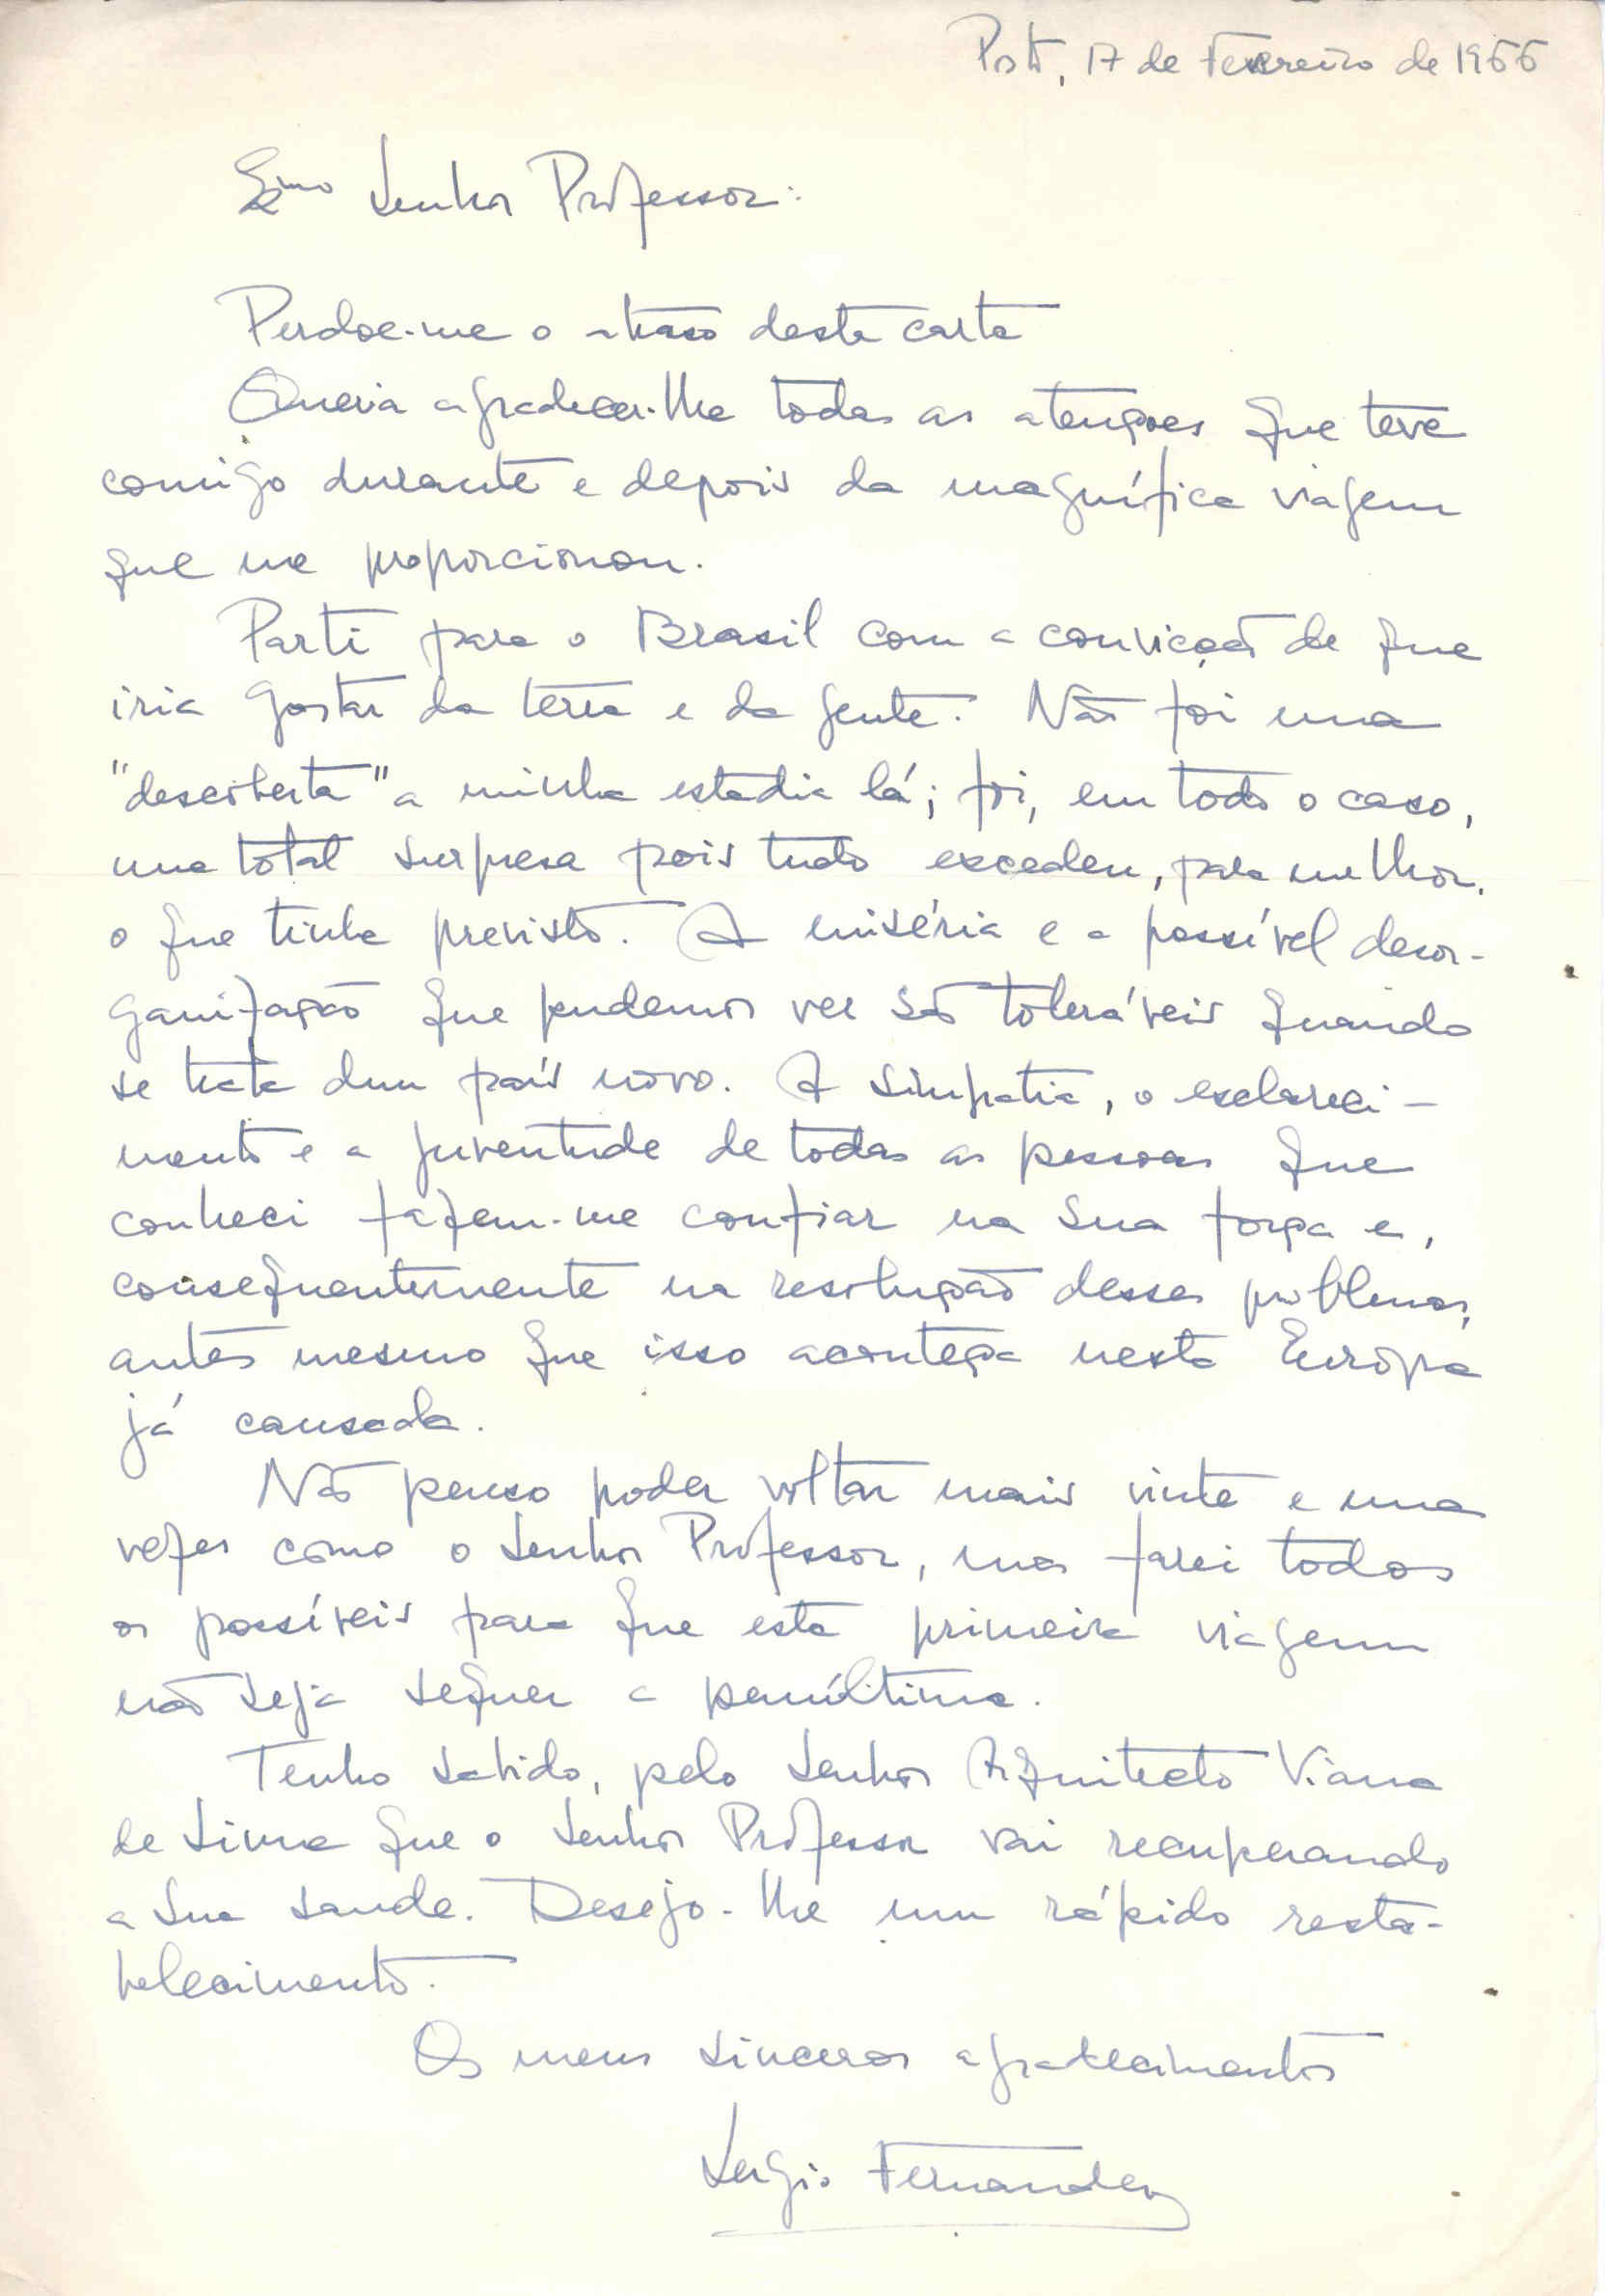 Porto, 17 de Fevereiro de 1966
Exmo Senhor Professor:
Perdoe-me o atraso desta carta
Queria agradecer-lhe todas as atenções que teve
comigo durante e depois da magnífica viagem
que me proporcionou.
Parti para o Brasil com a convicção de que
iria gostar da terra e da gente. Não foi uma
"descoberta" a minha estadia lá; foi, em todo o caso,
uma total surpresa pois tudo excedeu, para melhor,
o que tinha previsto. A miséria e a possível desor-
ganização que pudemos ver são toleráveis quando
se trata dum país novo. A simpatia, o esclareci-
mento e a juventude de todas as pessoas que
conheci fazem-me confiar na sua força e,
consequentemente na resolução desses problemas,
antes mesmo que isso aconteça nesta Europa
já cansada.
Não penso poder voltar mais vinte e uma
vezes como o Senhor Professor, mas farei todos
os possíveis para que esta primeira viagem
não seja sequer a penúltima.
Tenho sabido, pelo Senhor Arquitecto Viana
de Lima que o Senhor Professor vai recuperando
a sua saude. Desejo-lhe um rápido resta-
belecimento.
Os meus sinceros agradecimentos
Sergio Fernandez